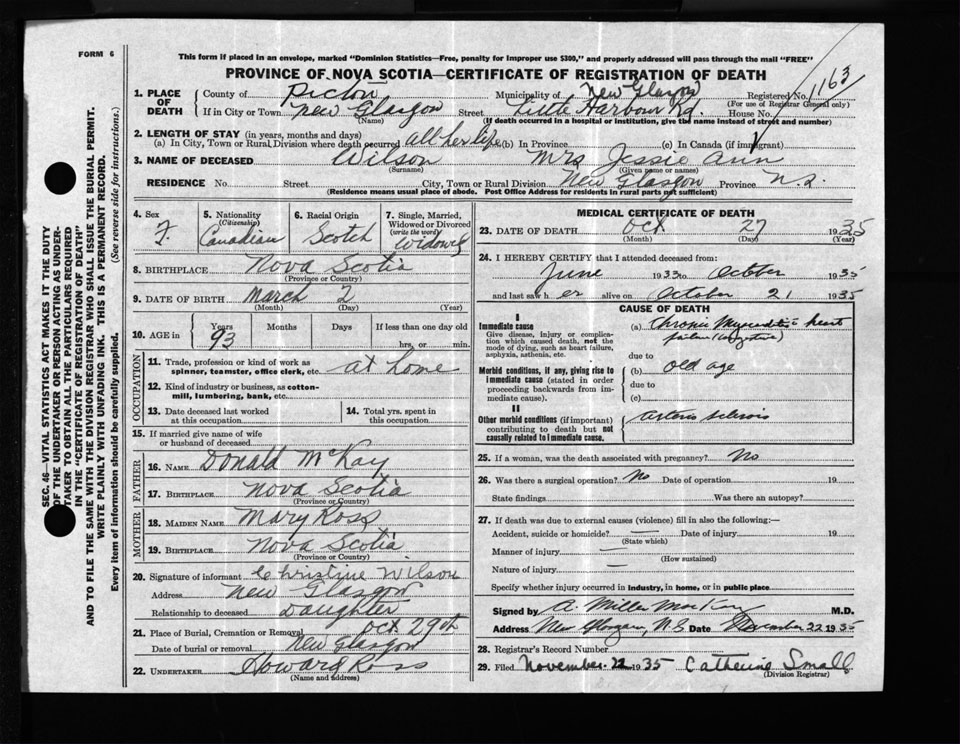 FORM 6
This form if placed in an envelope, marked "Dominion Statistics—Free, penalty for improper use $300," and properly addressed will pass through the mail "FREE"
PROVINCE OF NOVA SCOTIA—CERTIFICATE OF REGISTRATION OF DEATH
1. PLACE OF DEATH County of Pictou Municipality of New Glasgow Registered No. 1163
(For use of Registrar General only)
If in City or Town New Glasgow Street Little Harbour Rd. House No.
(Name) (If death occurred in a hospital or institution, give the name instead of street and number)
2. LENGTH OF STAY (in years, months and days)
(a) In City, Town or Rural Division where death occurred all her life (b) In Province (c) In Canada (if immigrant)
3. NAME OF DECEASED Wilson Mrs Jessie Ann
(Surname) (Given name or names)
RESIDENCE No. Street City, Town or Rural Division New Glasgow Province N.S.
(Residence means usual place of abode. Post Office Address for residents in rural parts not sufficient)
4. Sex F.
5. Nationality (Citizenship) Canadian
6. Racial Origin Scotch
7. Single, Married, Widowed or Divorced (write the word) Widowed
8. BIRTHPLACE Nova Scotia
(Province or Country)
9. DATE OF BIRTH March 2
(Month) (Day) (Year)
10. AGE in Years 93 Months Days If less than one day hrs. or min.
OCCUPATION
11. Trade, profession or kind of work as spinner, teamster, office clerk, etc. at home
12. Kind of industry or business, as cotton-mill, lumbering, bank, etc.
13. Date deceased last worked at this occupation
14. Total yrs. spent in this occupation
15. If married give name of wife or husband of deceased
FATHER
16. NAME Donald McKay
17. BIRTHPLACE Nova Scotia
(Province or Country)
MOTHER
18. MAIDEN NAME Mary Ross
19. BIRTHPLACE Nova Scotia
(Province or Country)
20. Signature of informant Christine Wilson
Address New Glasgow
Relationship to deceased Daughter
21. Place of Burial, Cremation or Removal New Glasgow
Date of burial or removal Oct 29th
22. UNDERTAKER Howard Ross
(Name and address)
MEDICAL CERTIFICATE OF DEATH
23. DATE OF DEATH Oct 27 1935
(Month) (Day) (Year)
24. I HEREBY CERTIFY that I attended deceased from:
June 1933 to October 1935
and last saw her alive on October 21 1935
CAUSE OF DEATH
I
Immediate cause
Give disease, injury or complication which caused death, not the mode of dying, such as heart failure, asphyxia, asthenia, etc.
(a) Chronic heart
due to
Morbid conditions, if any, giving rise to immediate cause (stated in order proceeding backwards from immediate cause).
(b) old age
due to
(c)
II
Other morbid conditions (if important) contributing to death but not causally related to immediate cause.
25. If a woman, was the death associated with pregnancy? No
26. Was there a surgical operation? No Date of operation 19
State findings Was there an autopsy?
27. If death was due to external causes (violence) fill in also the following:—
Accident, suicide or homicide? — Date of injury 19
(State which)
Manner of injury —
(How sustained)
Nature of injury —
Specify whether injury occurred in industry, in home, or in public place
Signed by A. Miller MacKay M.D.
Address New Glasgow, N.S. Date November 22 1935
28. Registrar's Record Number
29. Filed November 22 1935 Catherine Small
(Division Registrar)
SEC. 46—VITAL STATISTICS ACT MAKES IT THE DUTY
OF THE UNDERTAKER OR PERSON ACTING AS UNDER-
TAKER TO OBTAIN ALL THE PARTICULARS REQUIRED
IN THE "CERTIFICATE OF REGISTRATION OF DEATH"
AND TO FILE THE SAME WITH THE DIVISION REGISTRAR WHO SHALL ISSUE THE BURIAL PERMIT.
WRITE PLAINLY WITH UNFADING INK. THIS IS A PERMANENT RECORD.
Every item of information should be carefully supplied. (See reverse side for instructions.)